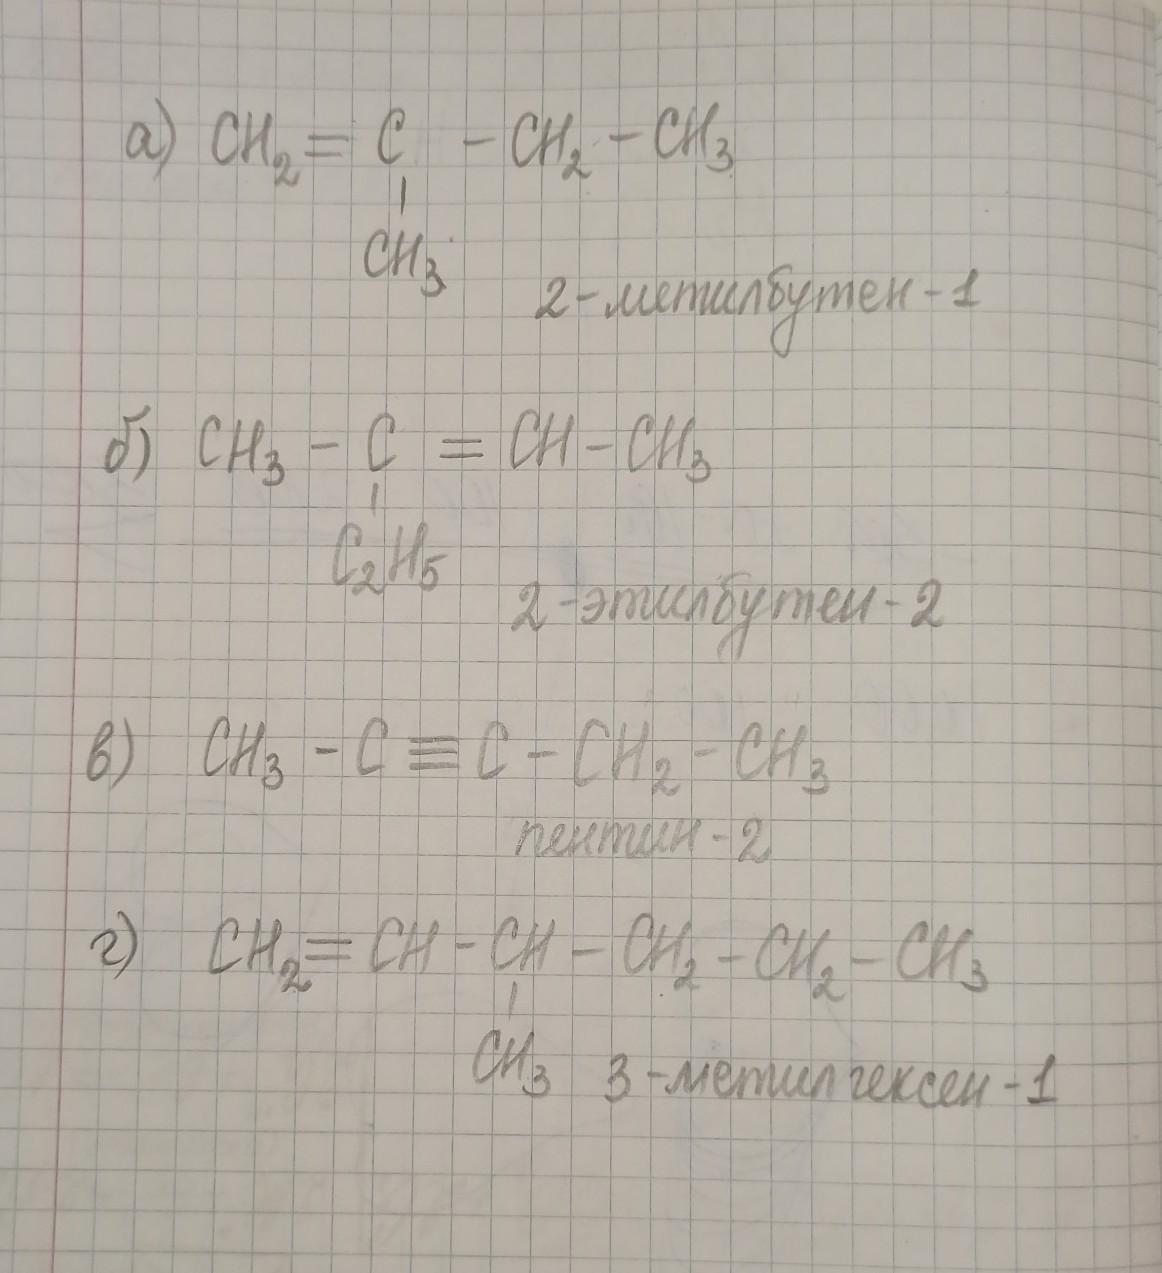 а) CH2 = C - CH2 - CH3
CH3
2-метилбутен-1
б) CH3 - C = CH - CH3
C2H5
2-этилбутен-2
в) CH3 - C ≡ C - CH2 - CH3
пентин-2
г) CH2 = CH - CH - CH2 - CH2 - CH3
CH3 3-метилгексен-1